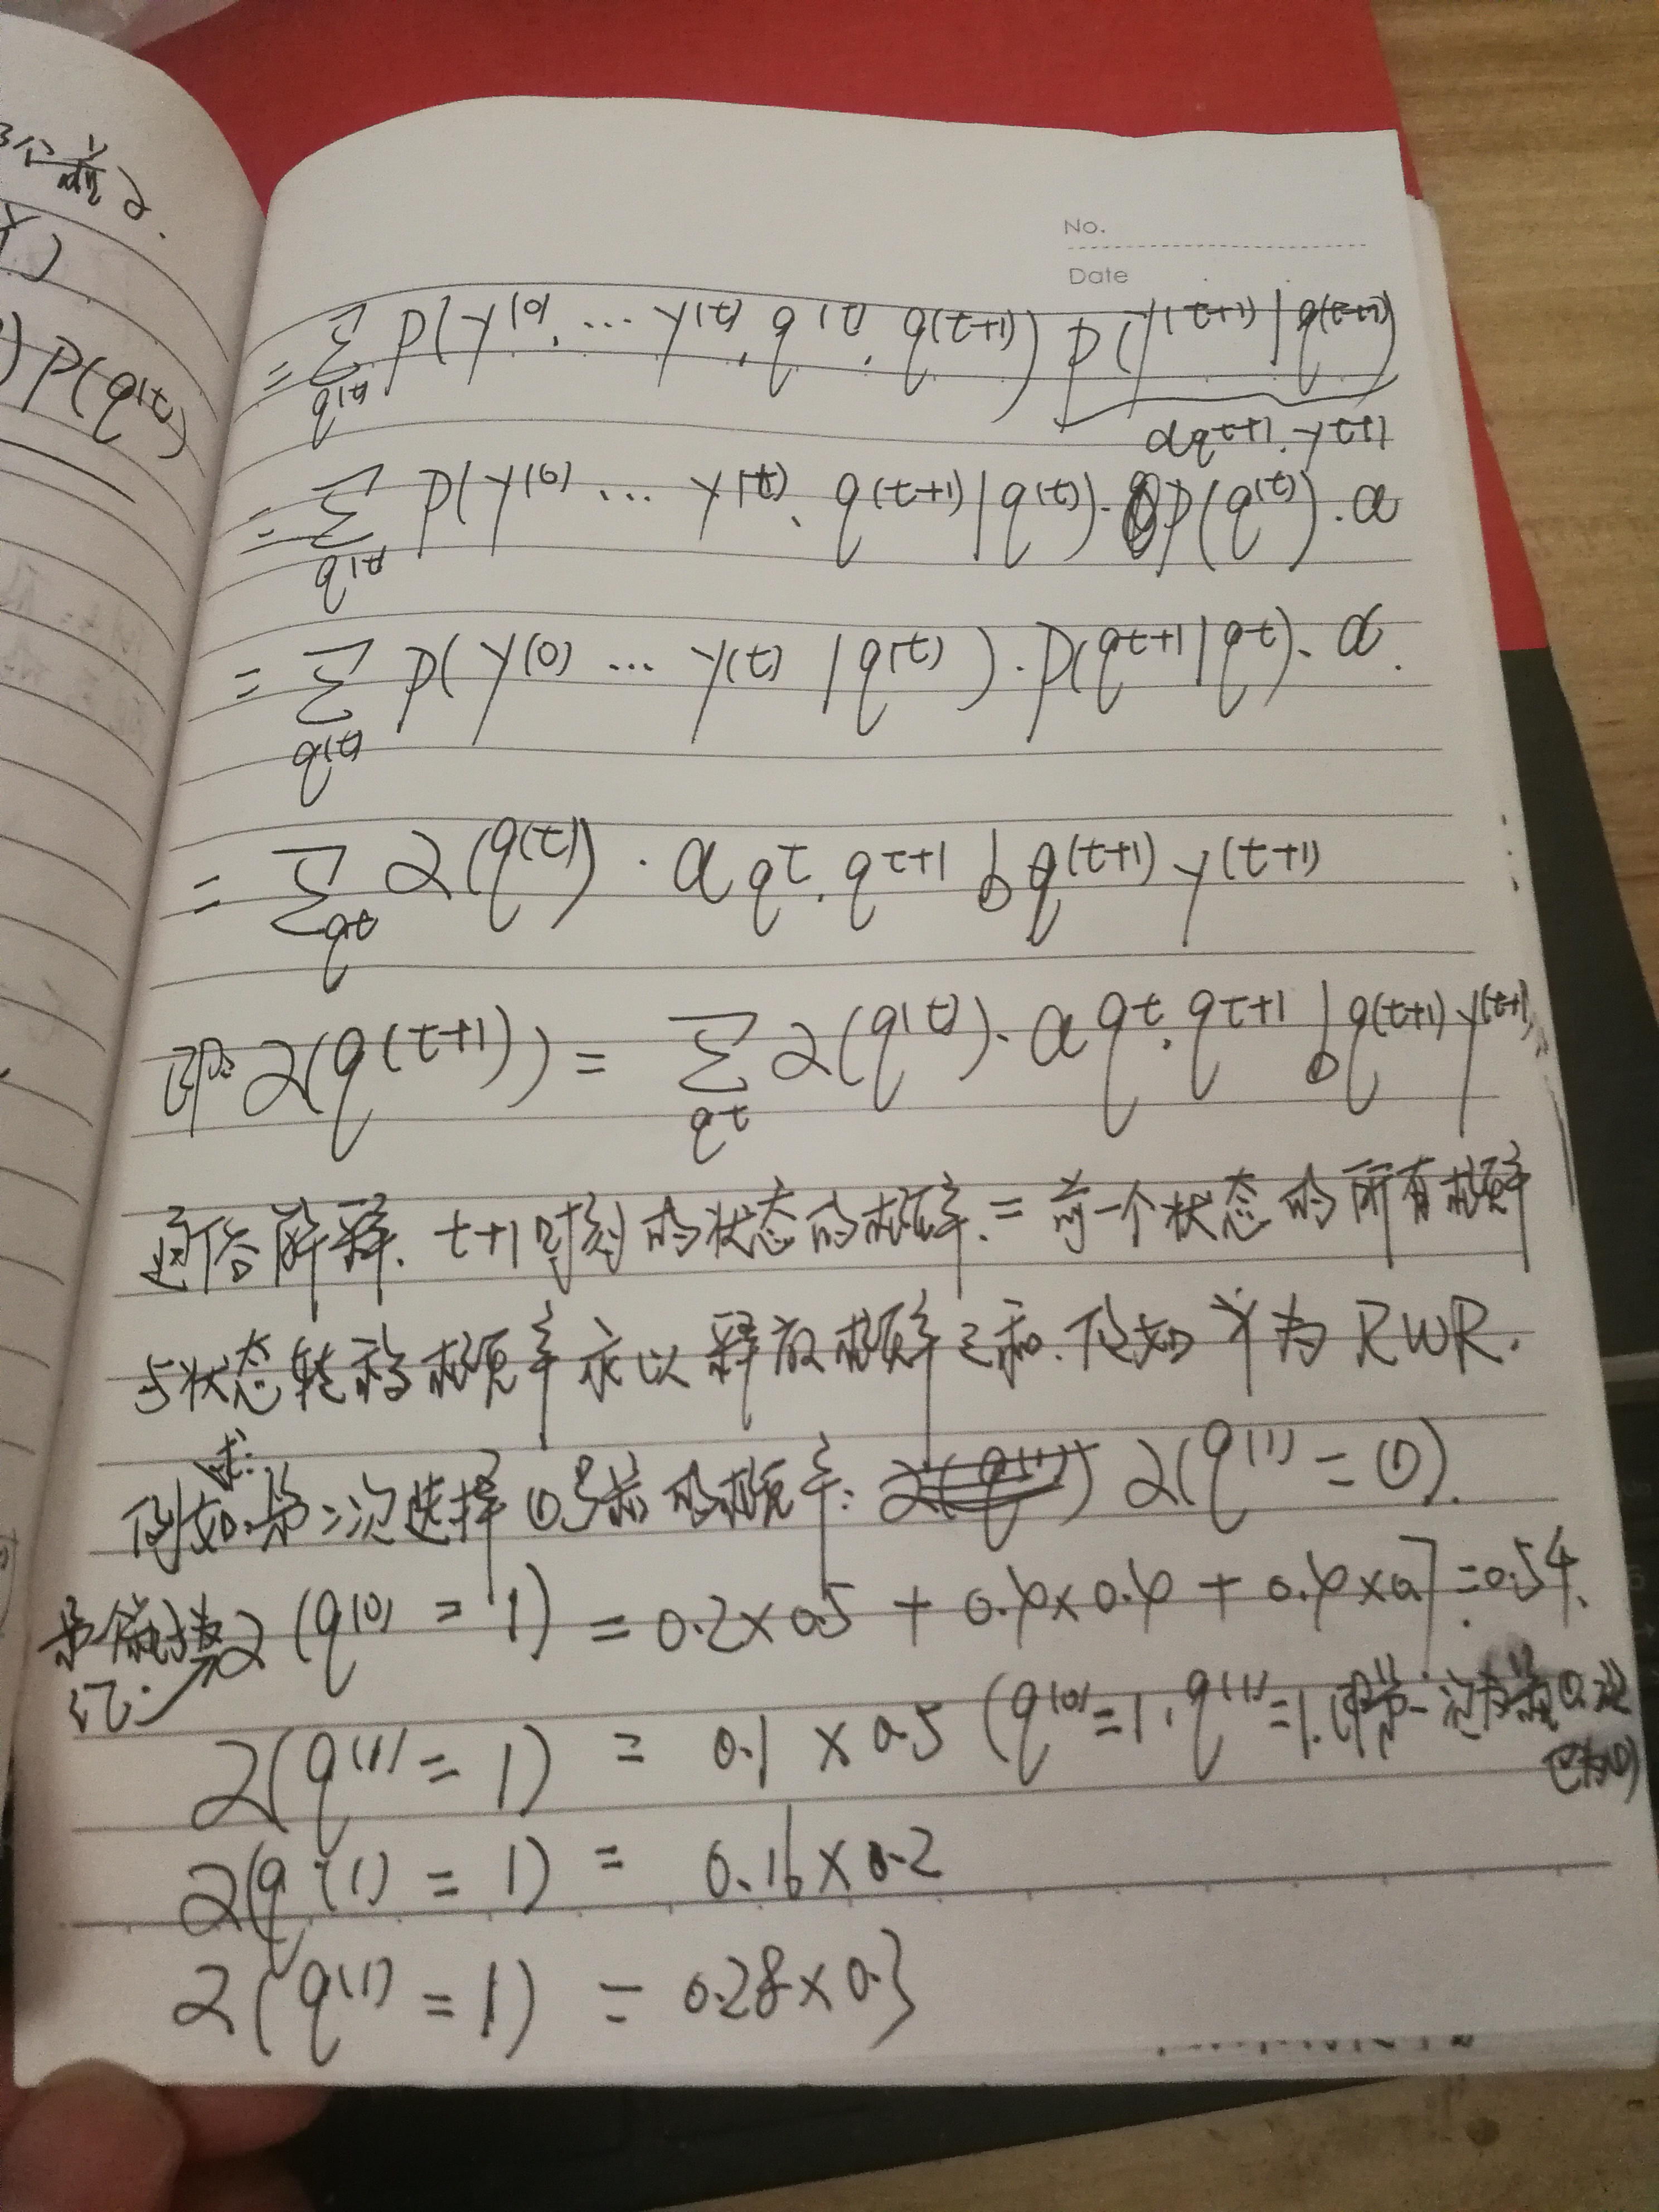 3个
P(q(t))
No.
Date
= Σ q(t) P(y(0), ... y(t), q(t), q(t+1)) P(y(t+1)|q(t+1))
a q t+1, y t+1
= Σ q(t) P(y(0) ... y(t), q(t+1)|q(t)) · P(q(t)) · a
= Σ q(t) P(y(0) ... y(t) |q(t)) · P(q t+1|q t) · a.
= Σ q t α(q(t)) · a q t, q t+1 b q(t+1) y(t+1)
即 α(q(t+1)) = Σ q t α(q(t)) · a q t, q t+1 b q(t+1) y(t+1)
通俗解释. t+1时刻的状态的概率. = 前一个状态的所有概率
与状态转移概率乘以释放概率之和. 假如 Y为 RWR.
求:
例如.第二次选择①号盒的概率: α(q(1)) α(q(1) = ①).
α(q(0) = 1) = 0.2×0.5 + 0.4×0.4 + 0.4×0.7 = 0.54.
α(q(1) = 1) = 0.1 × 0.5 (q(0)=1, q(1)=1.
α(q(1) = 1) = 0.16×0.2
α(q(1) = 1) = 0.28×0.3